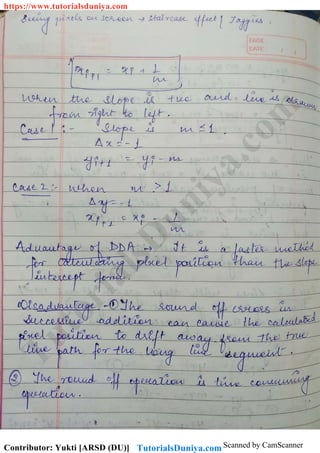 https://www.tutorialsduniya.com
Seeing pixels on screen → staircase effect / Jaggies.
PAGE
DATE
xi+1 = xi + 1/m
When the slope is +ve and line is drawn
from right to left.
Case 1 :- Slope is m ≤ 1.
Δx = -1
yi+1 = yi - m
Case 2 :- When m > 1
Δy = -1
xi+1 = xi - 1/m
Advantage of DDA → It is a faster method
for calculating pixel position than the slope
intercept form.
Disadvantage - ① The round off errors in
successive addition can cause the calculated
pixel position to drift away from the true
line path for the long line segment.
② The round off operation is time consuming
operation.
Contributor: Yukti [ARSD (DU)] TutorialsDuniya.com Scanned by CamScanner